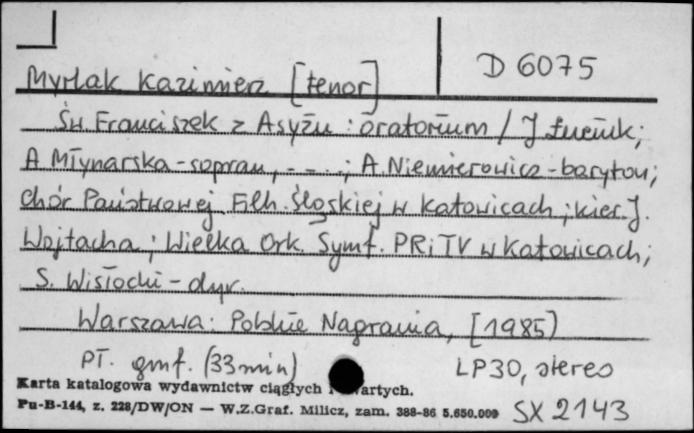 D 6075
Myrlak Kazimierz [tenor]
Św. Franciszek z Asyżu : oratorium / J. Łuciuk;
A. Młynarska - sopran, - - ...; A. Niemierowicz - baryton;
Chór Państwowej Filh. Śląskiej w Katowicach; kier. J.
Wojtacha; Wielka Ork. Symf. PRiTV w Katowicach;
S. Wisłocki - dyr.
Warszawa: Polskie Nagrania, [1985)
PŁ. gmf. (33 min) LP30, stereo
Karta katalogowa wydawnictw ciągłych i wartych.
Pu-B-144, z. 228/DW/ON — W.Z.Graf. Milicz, zam. 388-86 5.650.000 SX 2143